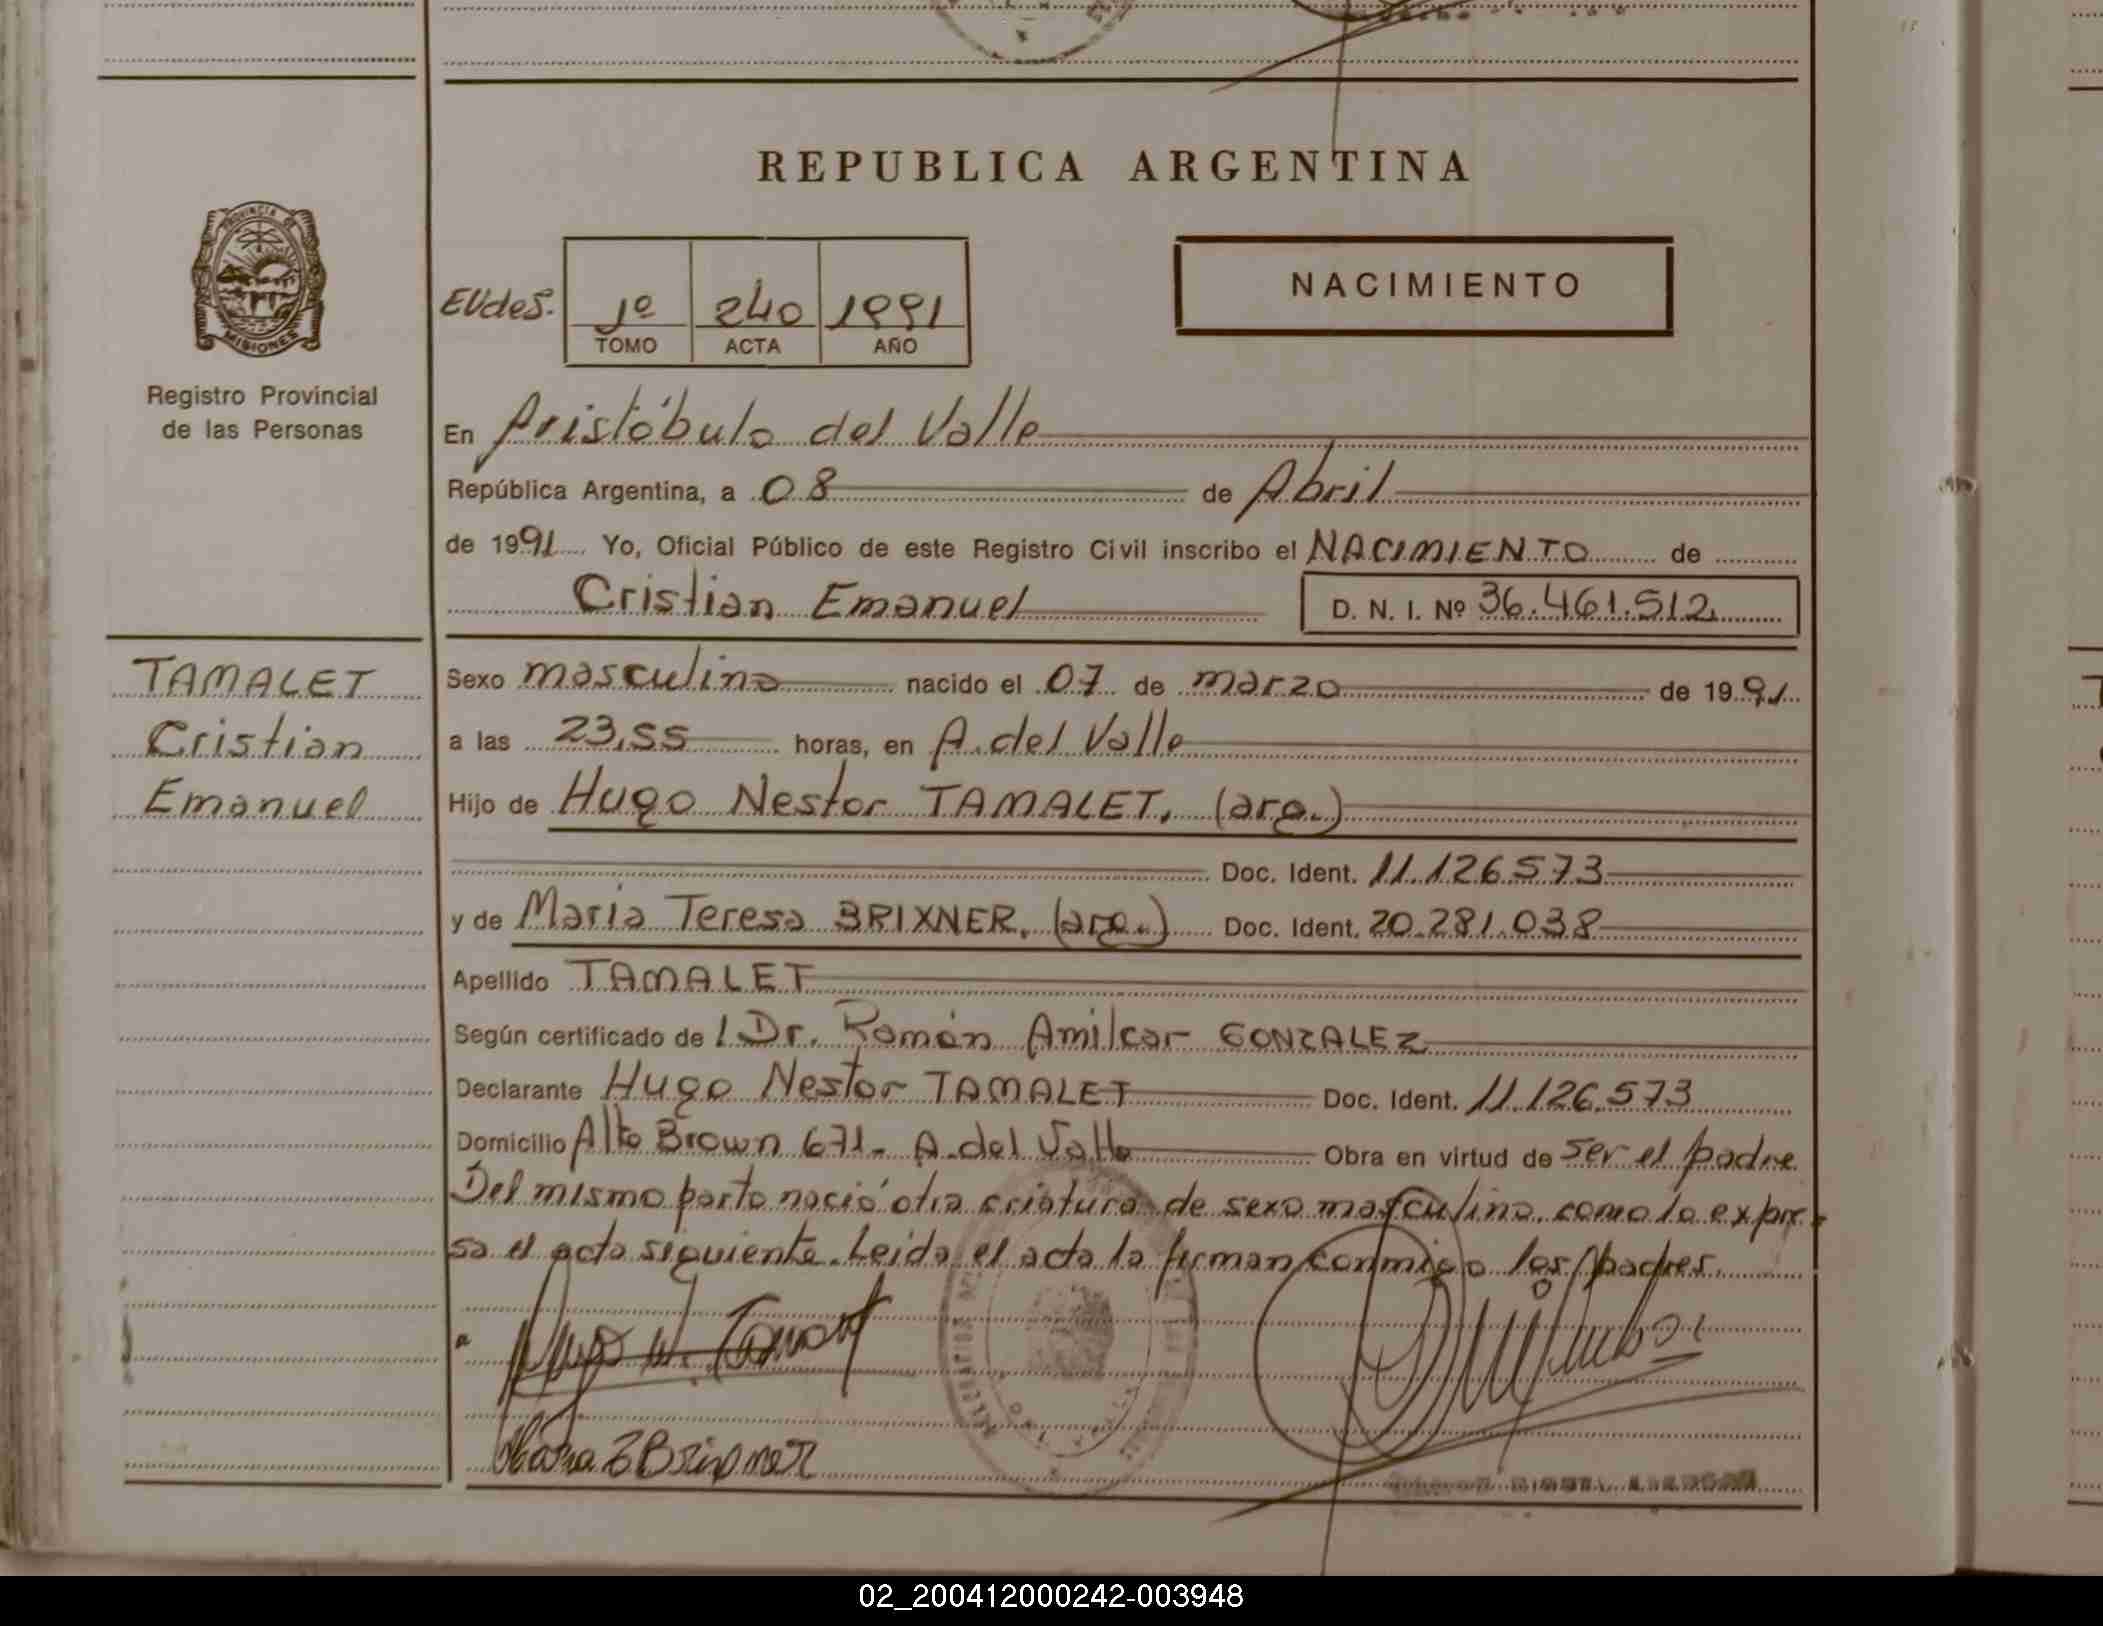 REPUBLICA ARGENTINA
PROVINCIA DE
MISIONES
Registro Provincial
de las Personas
EVdes.
1º 240 1991
TOMO ACTA AÑO
NACIMIENTO
En Aristóbulo del Valle
República Argentina, a 08 de Abril
de 1991 Yo, Oficial Público de este Registro Civil inscribo el NACIMIENTO de
Cristian Emanuel D. N. I. Nº 36.461.512
TAMALET
Cristian
Emanuel
Sexo masculino nacido el 07 de marzo de 1991
a las 23,55 horas, en A. del Valle
Hijo de Hugo Nestor TAMALET, (arg.)
Doc. Ident. 11.126.573
y de Maria Teresa BRIXNER, (arg.) Doc. Ident. 20.281.038
Apellido TAMALET
Según certificado del Dr. Román Amilcar GONZALEZ
Declarante Hugo Nestor TAMALET Doc. Ident. 11.126.573
Domicilio Alte Brown 671- A. del Valle Obra en virtud de ser el padre
Del mismo parto nació otra criatura de sexo masculino, como lo expre-
sa el acta siguiente. Leida el acta la firman conmigo los padres.
02_200412000242-003948